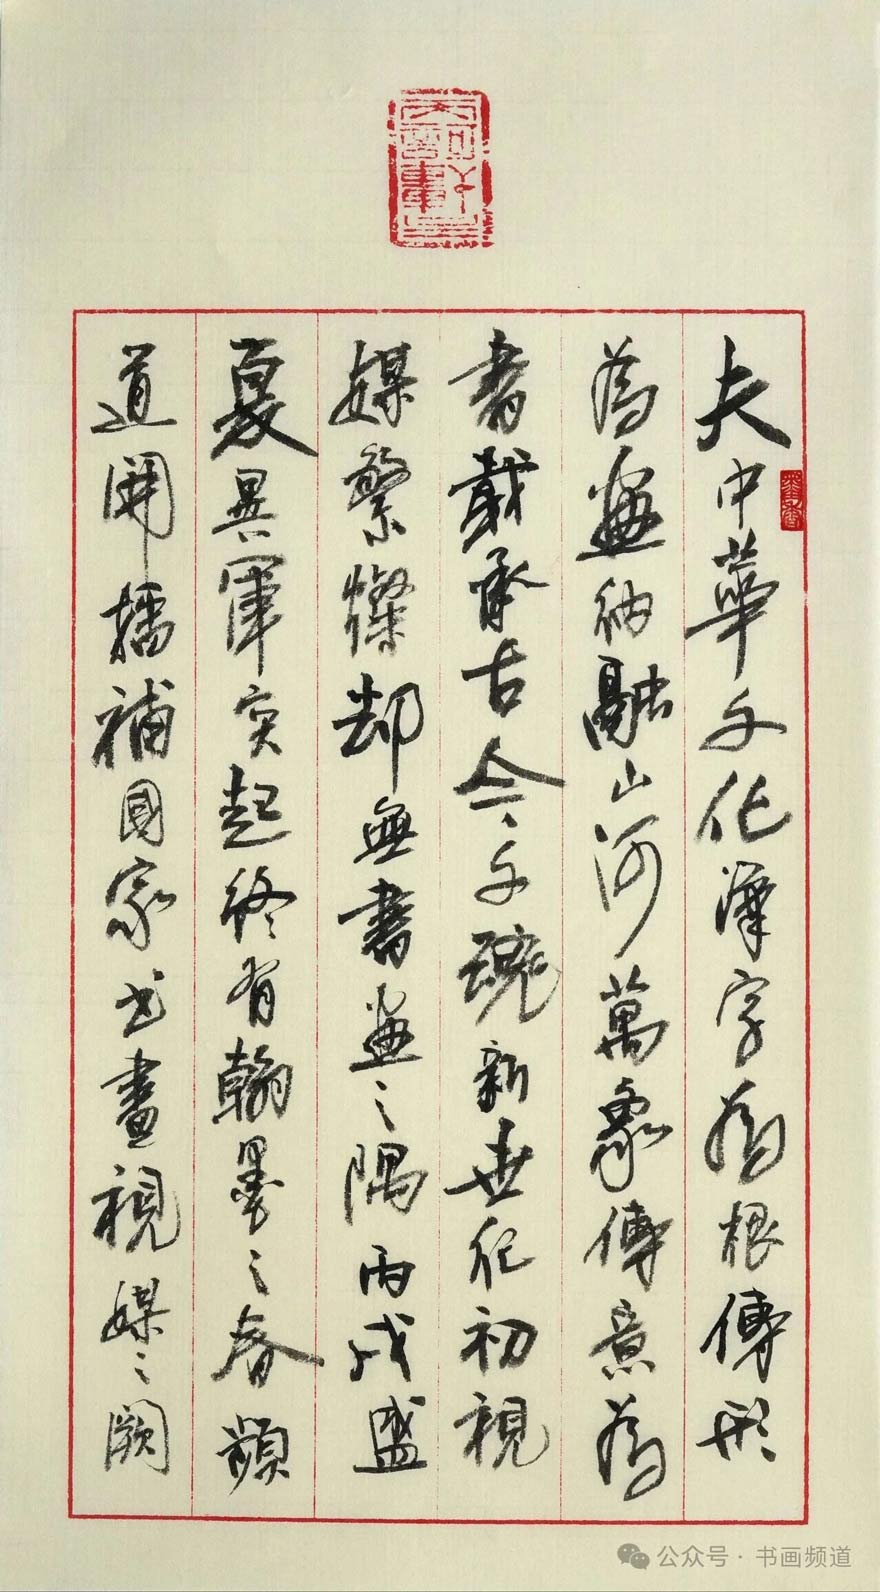 夫中華文化漢字為根傳形
為畫納融山河萬象傳意為
書載承古今文魂新世紀初視
媒繁燦却無書畫之隅丙戌盛
夏異軍突起終有翰墨之春頻
道開播補國家书畫視媒之闕
公众号·书画频道